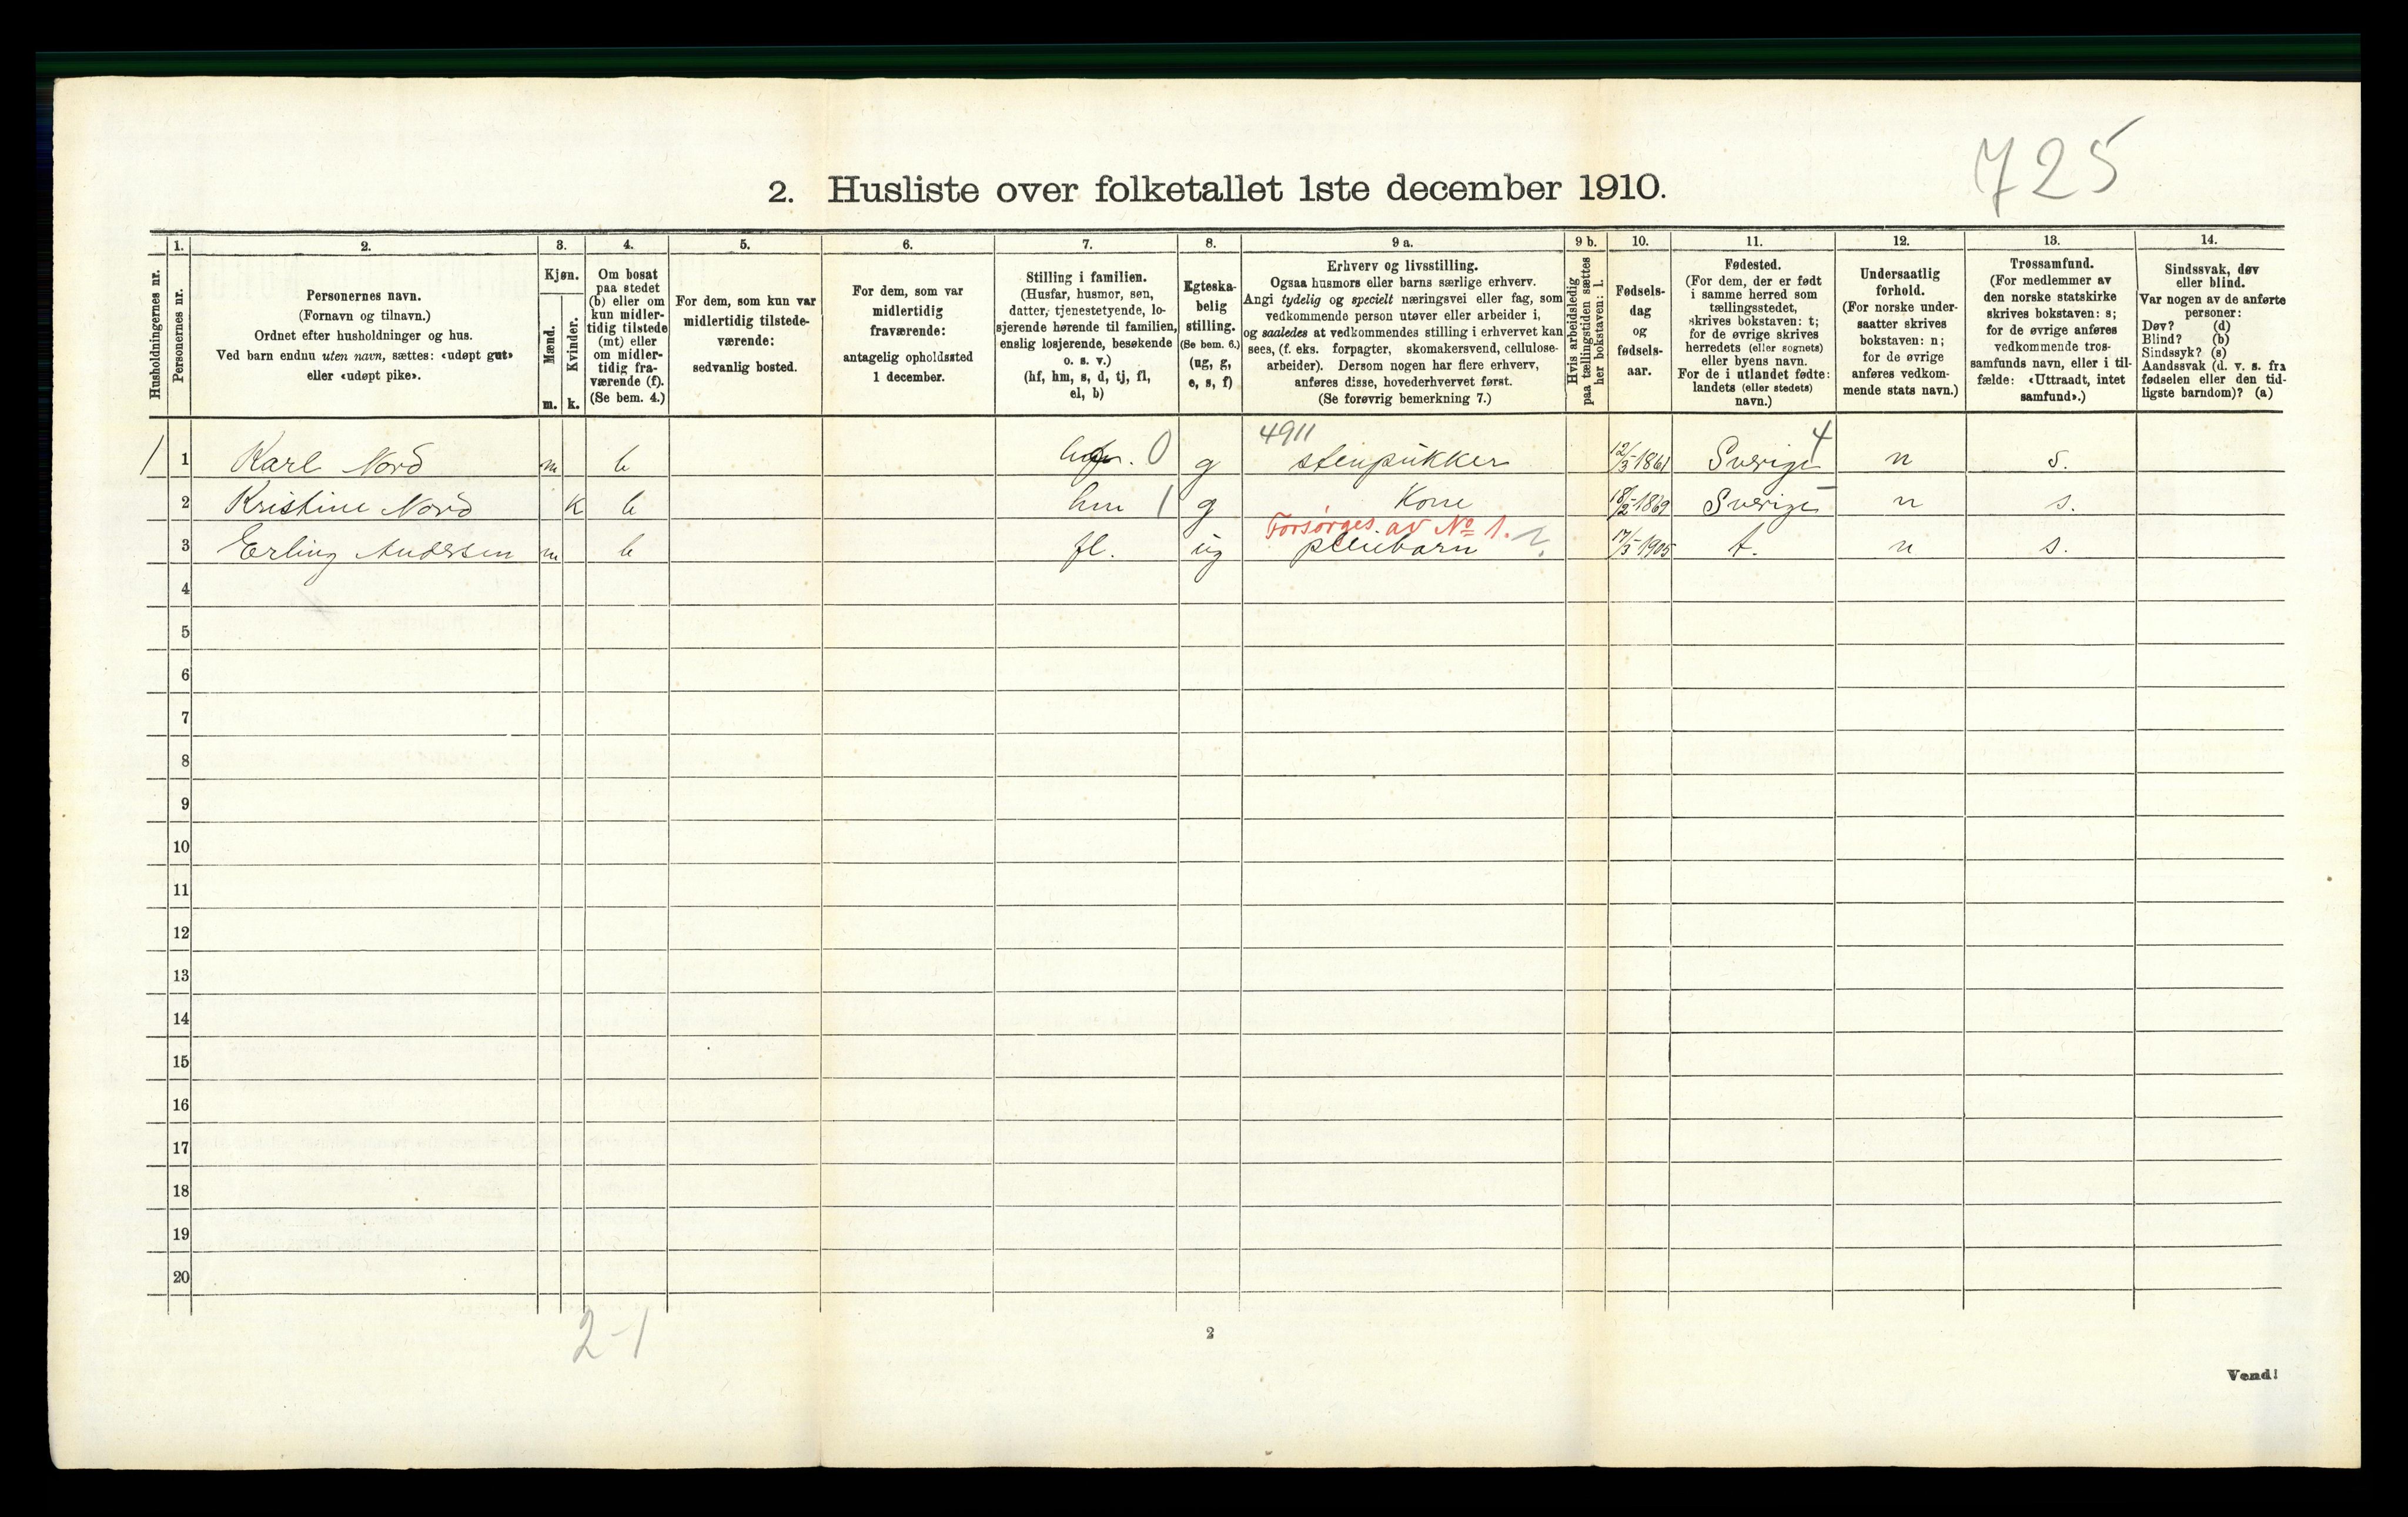 725
2. Husliste over folketallet 1ste december 1910.
Husholdningernes nr.
1.
Personernes nr.
2.
Personernes navn.
(Fornavn og tilnavn.)
Ordnet efter husholdninger og hus.
Ved barn endnu uten navn, sættes: «udøpt gut»
eller «udøpt pike».
3.
Kjøn.
Mænd.
Kvinder.
m. k.
4.
Om bosat
paa stedet
(b) eller om
kun midler-
tidig tilstede
(mt) eller
om midler-
tidig fra-
værende (f).
(Se bem. 4.)
5.
For dem, som kun var
midlertidig tilstede-
værende:
sedvanlig bosted.
6.
For dem, som var
midlertidig
fraværende:
antagelig opholdssted
1 december.
7.
Stilling i familien.
(Husfar, husmor, søn,
datter, tjenestetyende, lo-
sjerende hørende til familien,
enslig losjerende, besøkende
o. s. v.)
(hf, hm, s, d, tj, fl,
el, b)
8.
Egteska-
belig
stilling.
(Se bem. 6.)
(ug, g,
e, s, f)
9 a.
Erhverv og livsstilling.
Ogsaa husmors eller barns særlige erhverv.
Angi tydelig og specielt næringsvei eller fag, som
vedkommende person utøver eller arbeider i,
og saaledes at vedkommendes stilling i erhvervet kan
sees, (f. eks. forpagter, skomakersvend, cellulose-
arbeider). Dersom nogen har flere erhverv,
anføres disse, hovederhvervet først.
(Se forøvrig bemerkning 7.)
9 b.
Hvis arbeidsledig
paa tællingstiden sættes
her bokstaven: l.
10.
Fødsels-
dag
og
fødsels-
aar.
11.
Fødested.
(For dem, der er født
i samme herred som
tællingsstedet,
skrives bokstaven: t;
for de øvrige skrives
herredets (eller sognets)
eller byens navn.
For de i utlandet fødte:
landets (eller stedets)
navn.)
12.
Undersaatlig
forhold.
(For norske under-
saatter skrives
bokstaven: n;
for de øvrige
anføres vedkom-
mende stats navn.)
13.
Trossamfund.
(For medlemmer av
den norske statskirke
skrives bokstaven: s;
for de øvrige anføres
vedkommende tros-
samfunds navn, eller i til-
fælde: «Uttraadt, intet
samfund».)
14.
Sindssvak, døv
eller blind.
Var nogen av de anførte
personer:
Døv? (d)
Blind? (b)
Sindssyk? (s)
Aandssvak (d. v. s. fra
fødselen eller den tid-
ligste barndom)? (a)
4911 4
1 1 Karl Nord m b 0 g stenpukker 12/3-1861 Sverige n s.
2 Kristine Nord k b hm 1 g Kone 18/2-1869 Sverige n s.
Forsørges av No 1.
3 Erling Andersen m b fl. ug pleiebarn 17/3-1905 t. n s.
4
5
6
7
8
9
10
11
12
13
14
15
16
17
18
19
20
2-1
2
Vend!